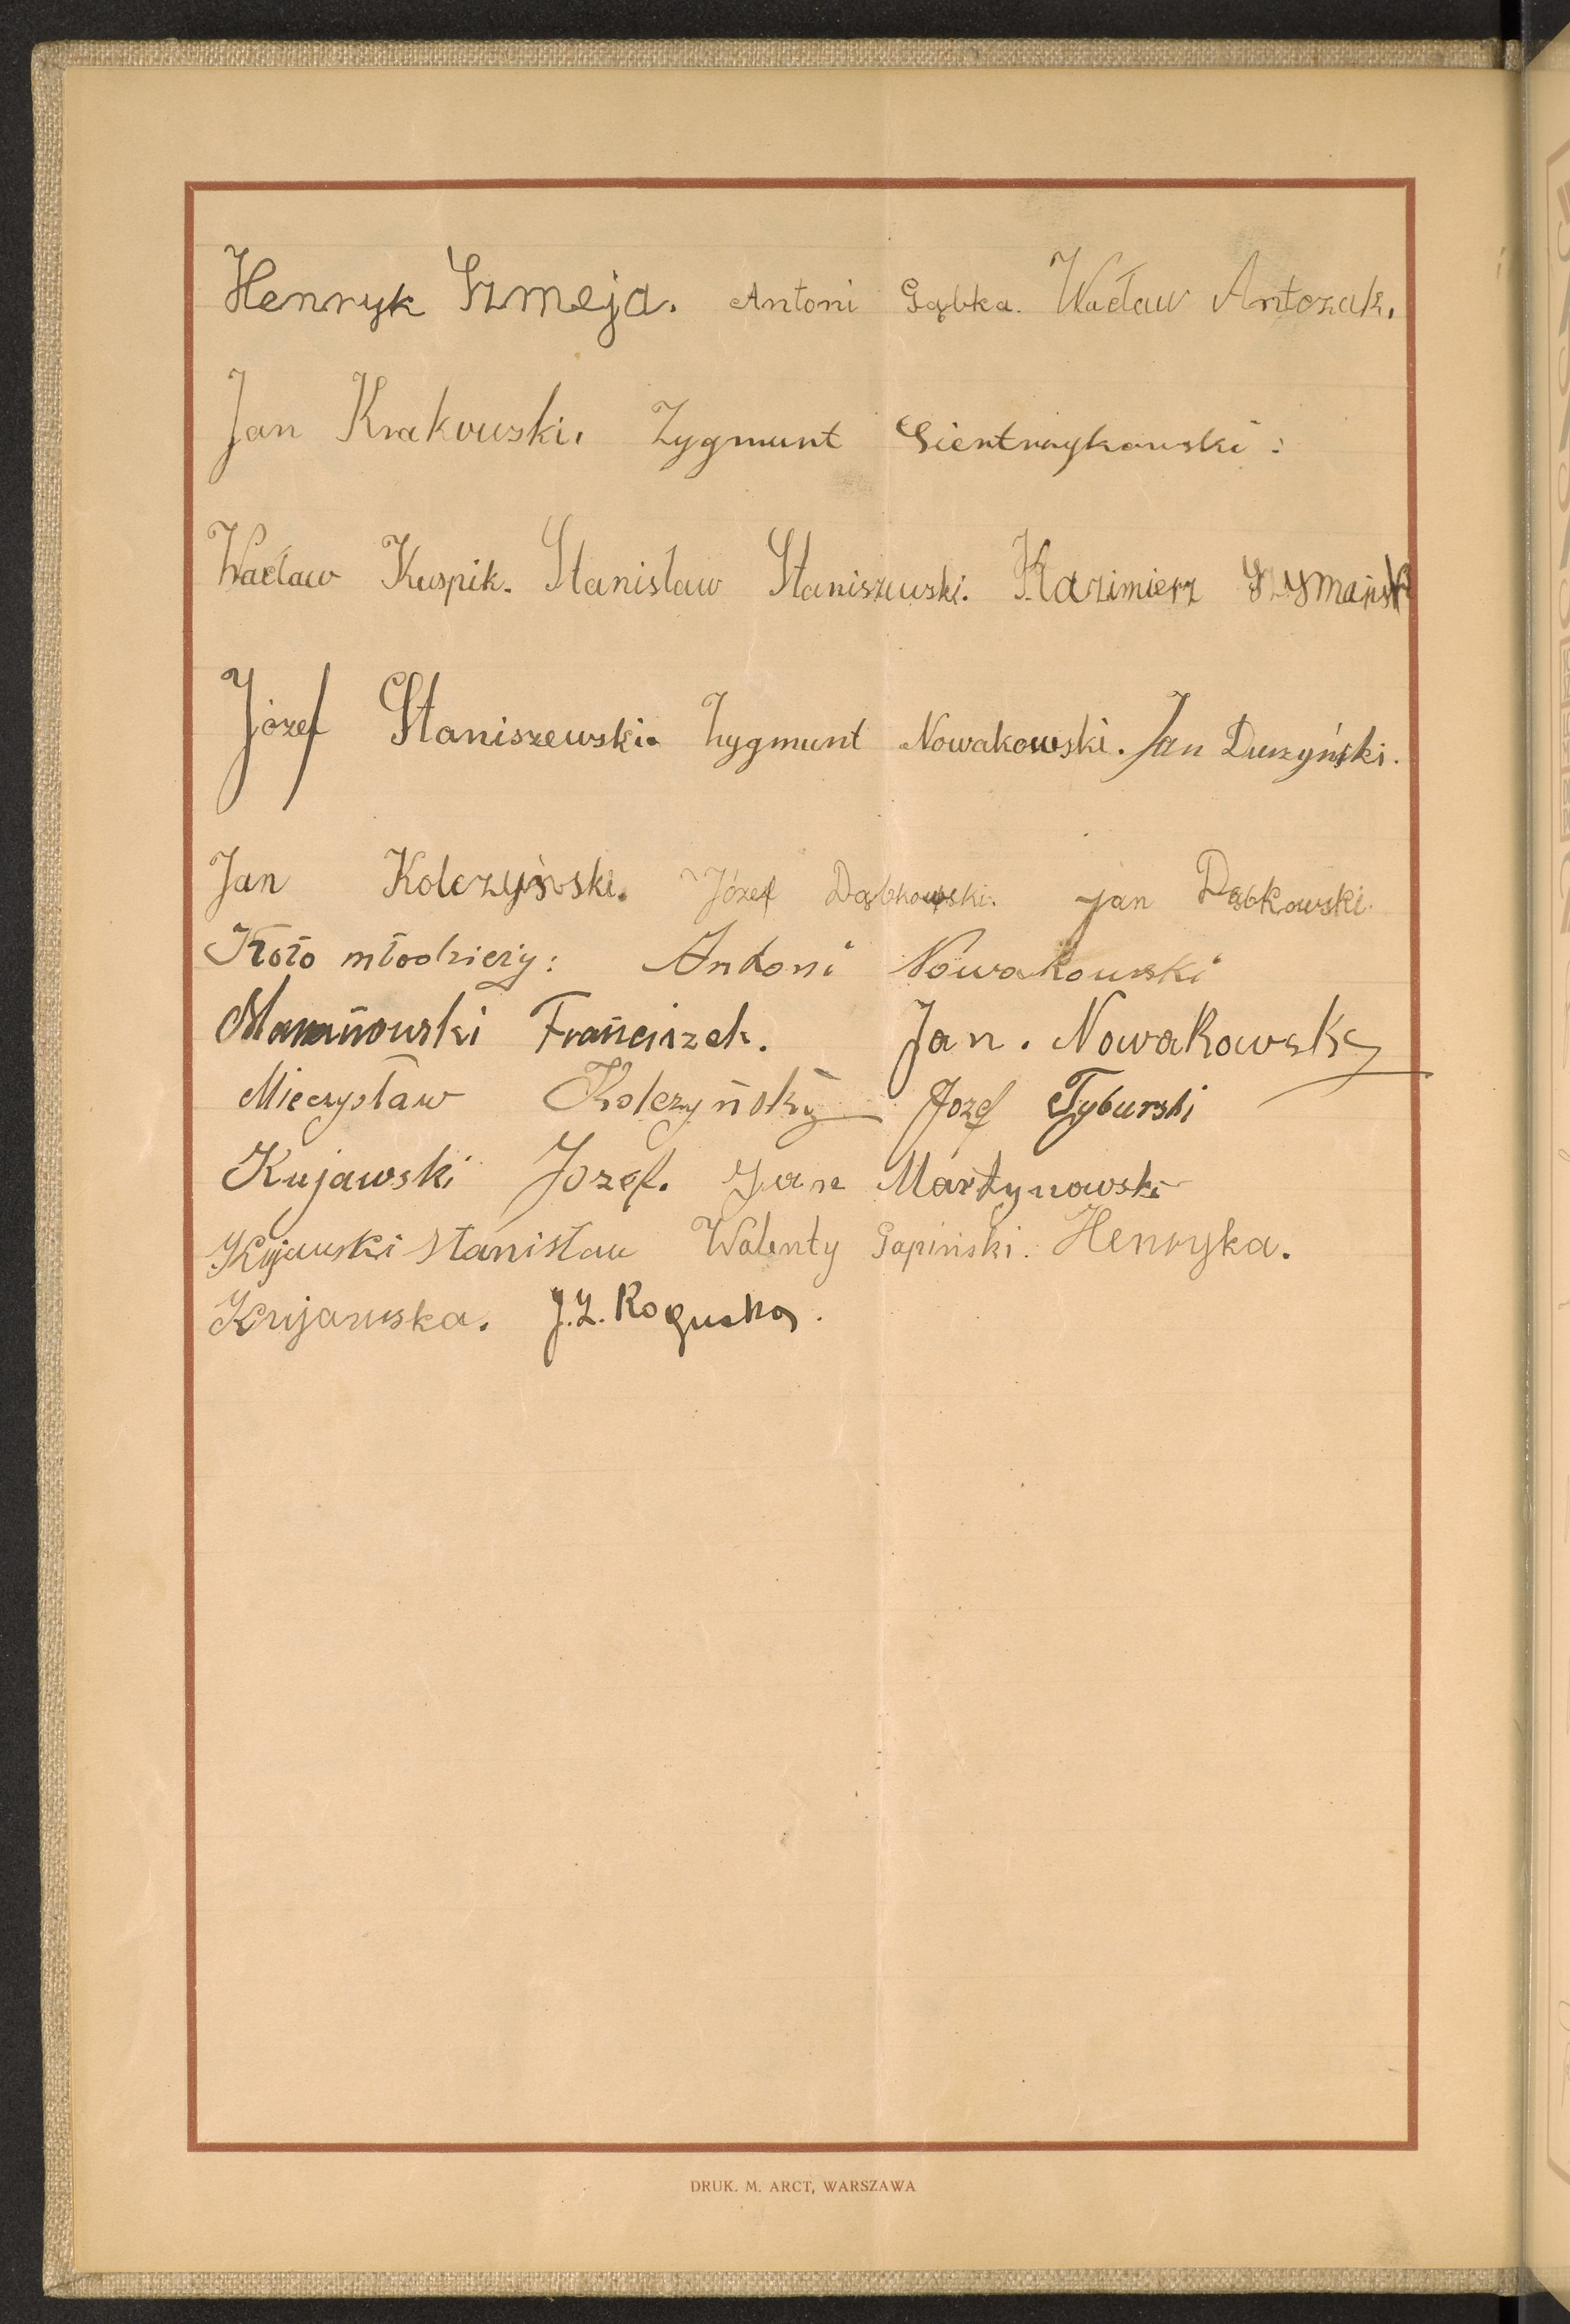 Henryk Szmeja. Antoni Gąbka. Wacław Antczak.
Jan Krakowski. Zygmunt Sientrzykowski:
Wacław Kuspik. Stanisław Staniszewski. Kazimierz Szymański
Józef Staniszewski. Zygmunt Nowakowski. Jan Duszyński.
Jan Kolczyński. Józef Dąbkowski. Jan Dąbkowski.
Koło młodzieży: Antoni Nowakowski
Franciszek. Jan. Nowakowski
Mieczysław Kolczyński Józef Tyburski
Kujawski Jozef. Jan Martynowski
Kujawski Stanisław Walenty Gapiński. Henryka.
Kujawska. J.Z. Roguska.
DRUK. M. ARCT, WARSZAWA